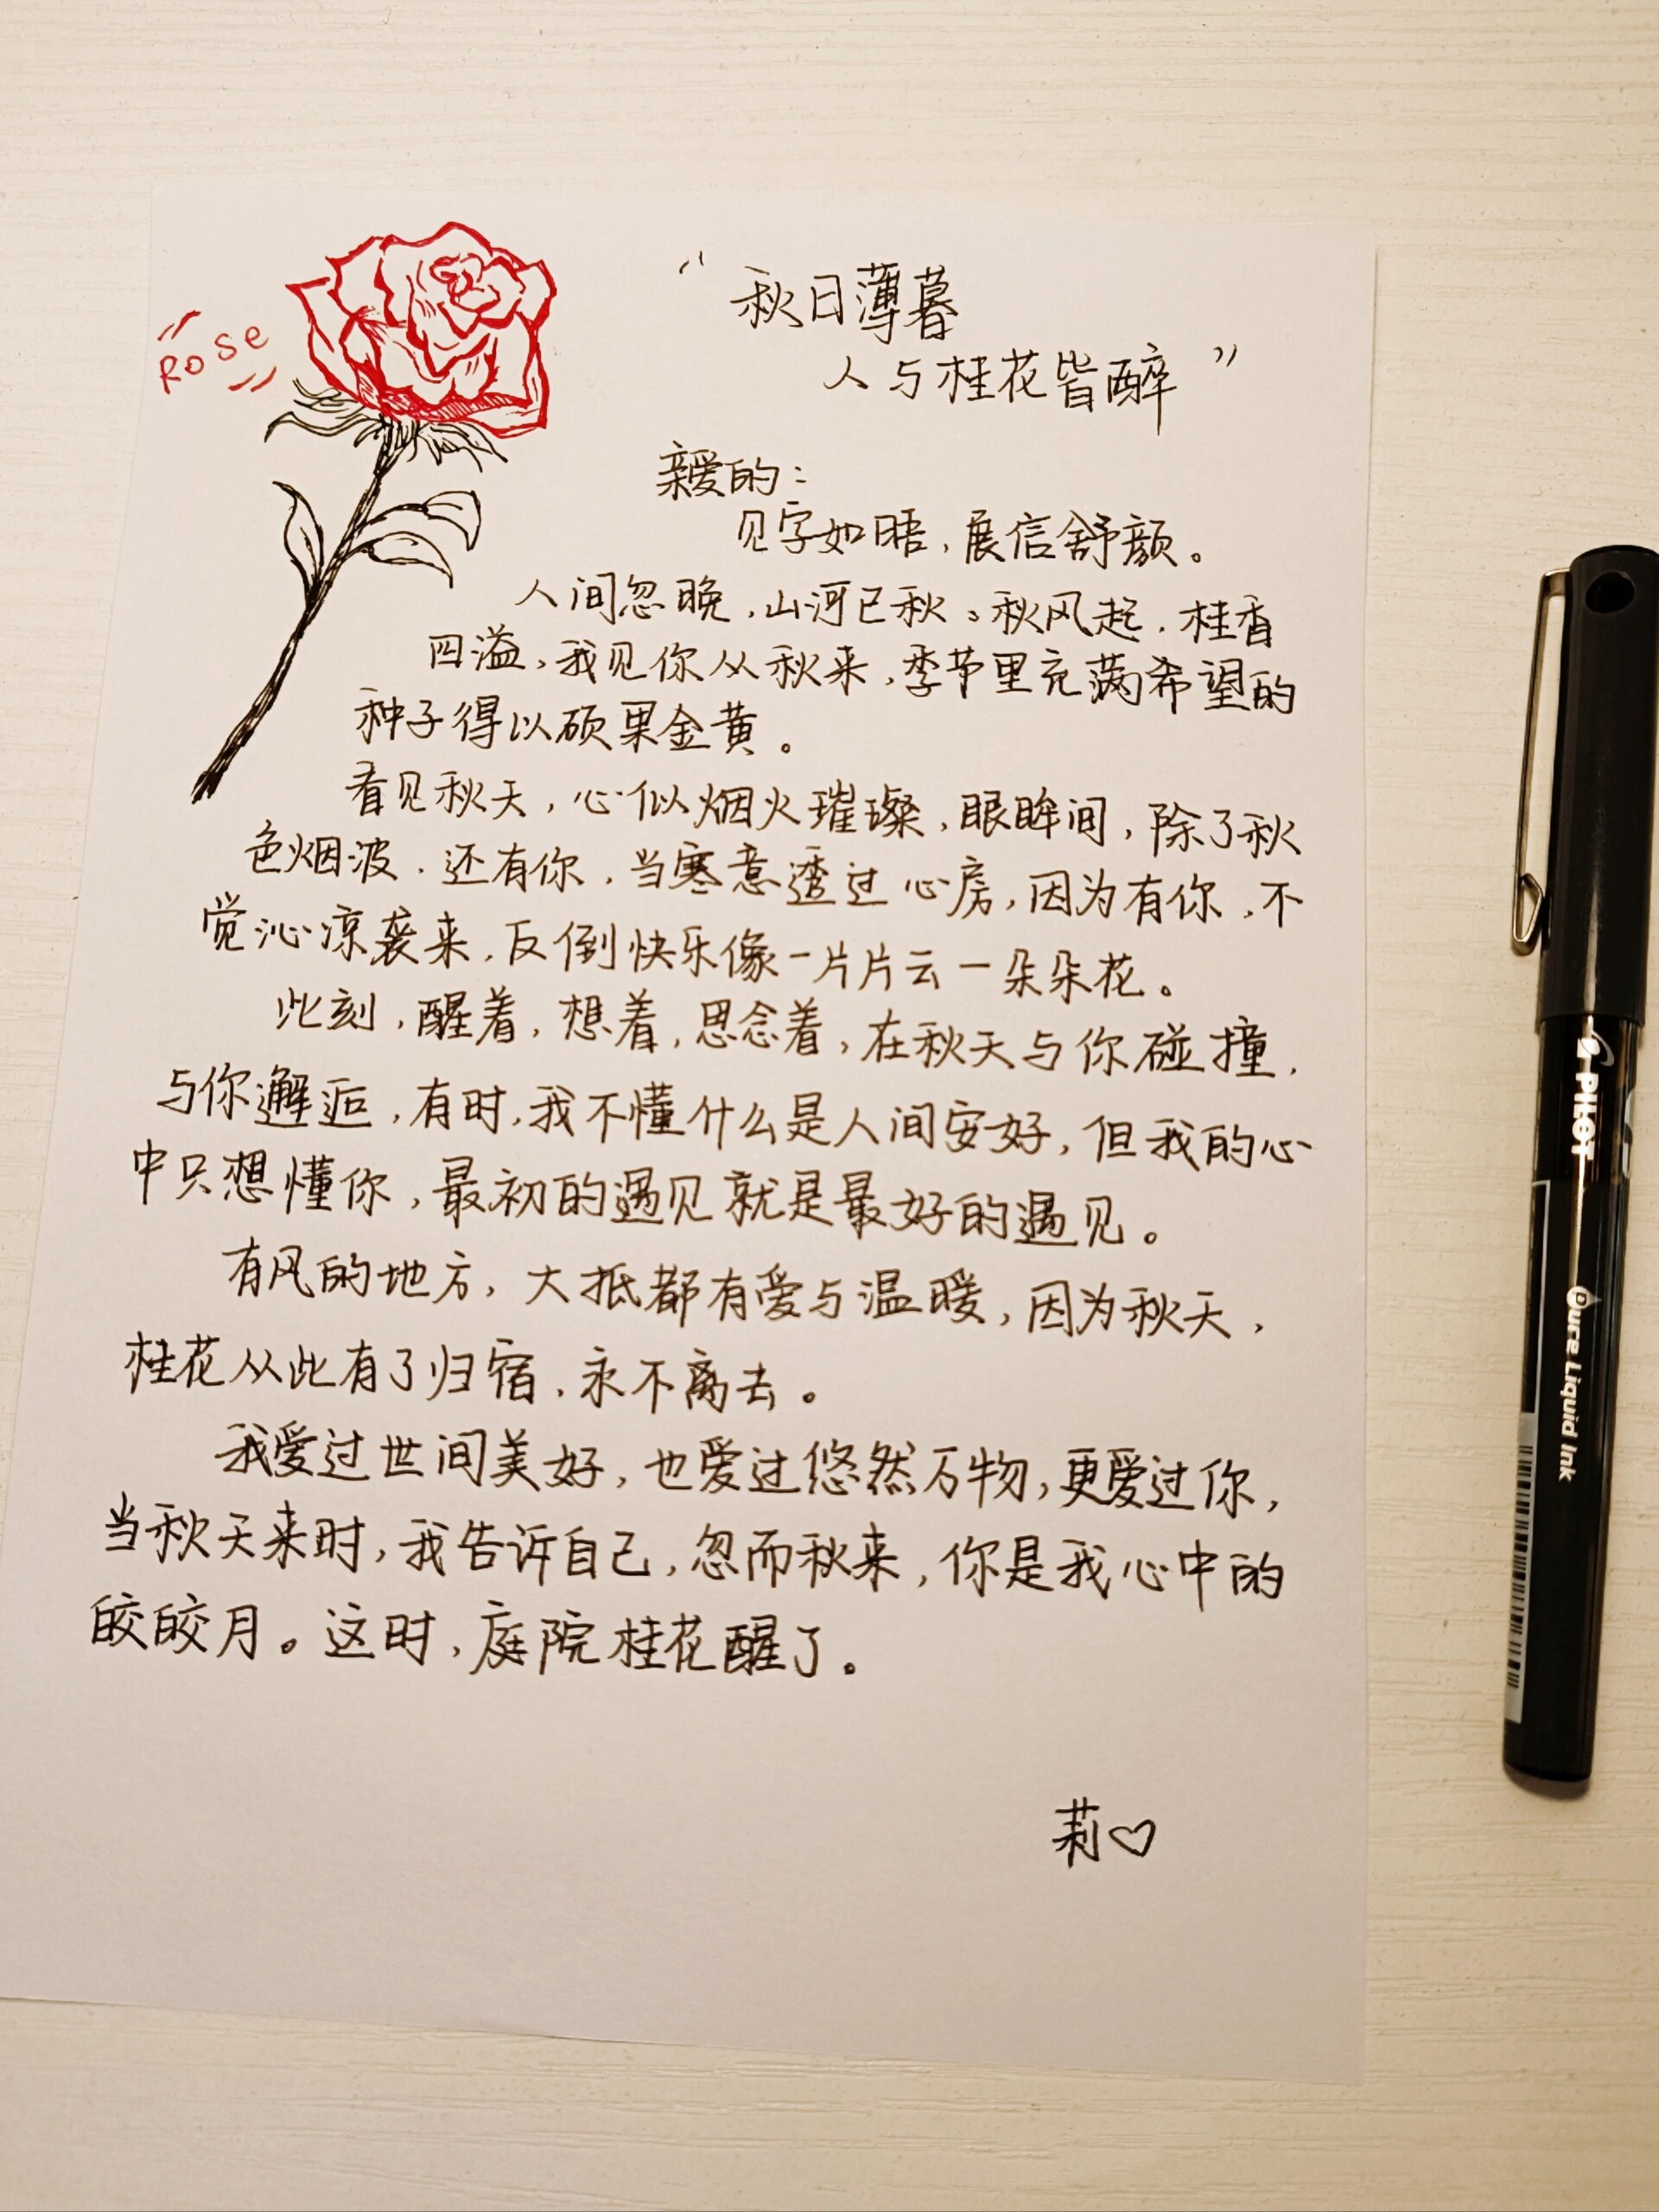 "秋日薄暮
人与桂花皆醉"
"Rose"
亲爱的：
见字如晤，展信舒颜。
人间忽晚，山河已秋。秋风起，桂香
四溢，我见你从秋来，季节里充满希望的
种子得以硕果金黄。
看见秋天，心似烟火璀璨，眼眸间，除了秋
色烟波，还有你，当寒意透过心房，因为有你，不
觉沁凉袭来，反倒快乐像一片片云一朵朵花。
此刻，醒着，想着，思念着，在秋天与你碰撞，
与你邂逅，有时，我不懂什么是人间安好，但我的心
中只想懂你，最初的遇见就是最好的遇见。
有风的地方，大抵都有爱与温暖，因为秋天，
桂花从此有了归宿，永不离去。
我爱过世间美好，也爱过悠然万物，更爱过你，
当秋天来时，我告诉自己，忽而秋来，你是我心中的
皎皎月。这时，庭院桂花醒了。
莉♡
PILOT
Pure Liquid Ink